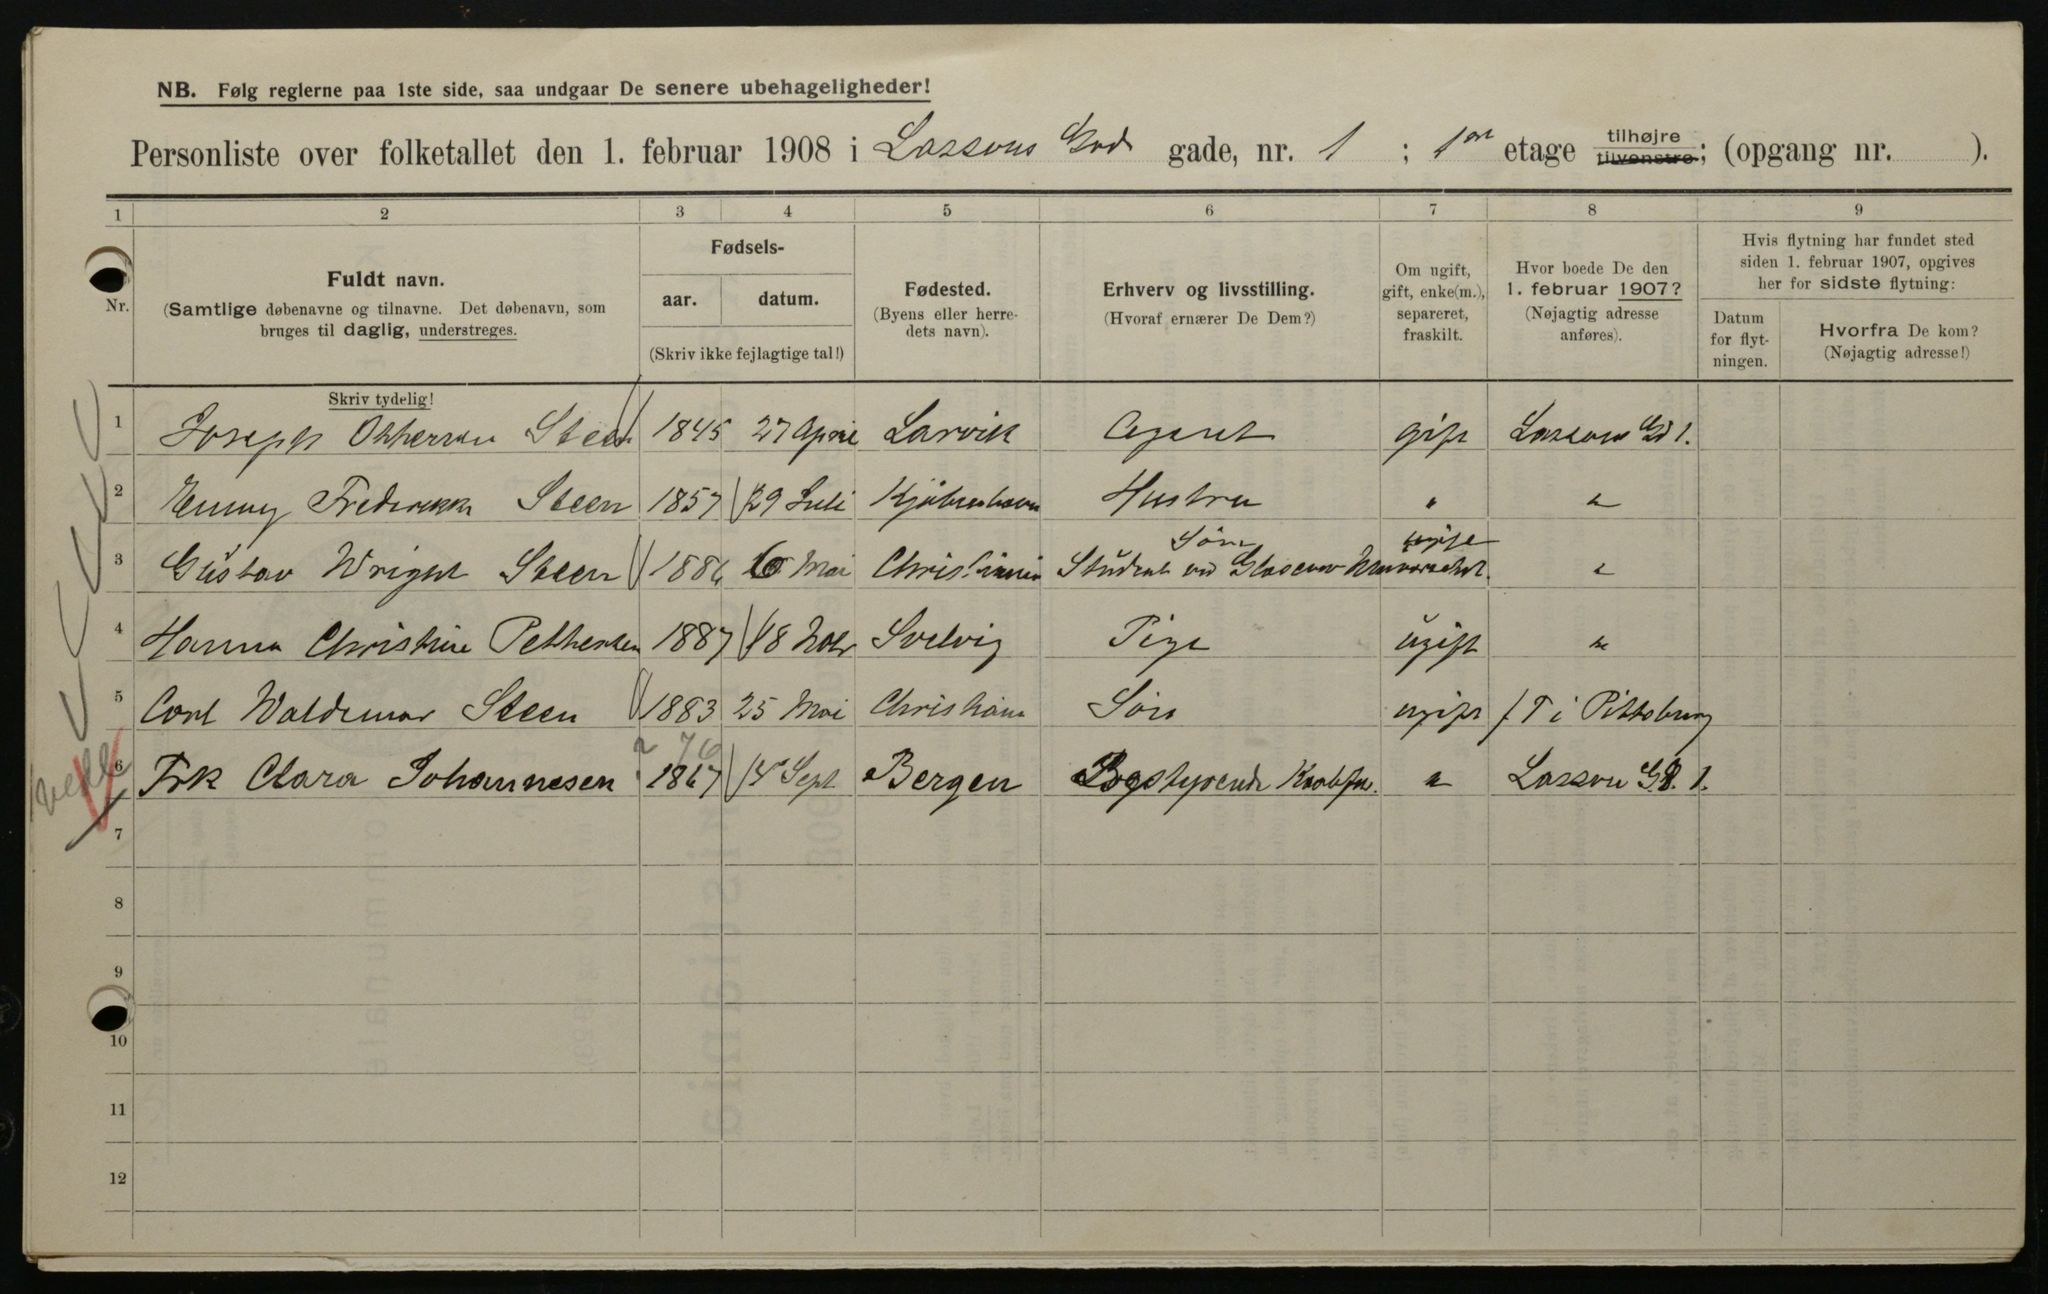 NB. Følg reglerne paa 1ste side, saa undgaar De senere ubehageligheder!
Personliste over folketallet den 1. februar 1908 i Lassons Gad gade, nr. 1 ; 1ste etage tilhøjre tilvenstre; (opgang nr. ).
1 2 3 4 5 6 7 8 9
Nr.
Fuldt navn.
(Samtlige døbenavne og tilnavne. Det døbenavn, som
bruges til daglig, understreges.
Skriv tydelig!
Fødsels-
aar. datum.
(Skriv ikke fejlagtige tal!)
Fødested.
(Byens eller herre-
dets navn).
Erhverv og livsstilling.
(Hvoraf ernærer De Dem?)
Om ugift,
gift, enke(m.),
separeret,
fraskilt.
Hvor boede De den
1. februar 1907?
(Nøjagtig adresse
anføres).
Hvis flytning har fundet sted
siden 1. februar 1907, opgives
her for sidste flytning:
Datum
for flyt-
ningen.
Hvorfra De kom?
(Nøjagtig adresse!)
1 Joseph Otherson Steen 1845 27 April Larvik Agent gift Lassons Gd 1.
2 Emmy Fredrikke Steen 1857 29 Juli Kjøbenhavn Hustru " "
Søn ugift
3 Gustav Wright Steen 1886 6 Mai Christiania Student ved Glasgow Universitet. "
4 Hanna Christine Pettersen 1887 18 Nobr Svelvig Pige ugift "
5 Carl Waldemar Steen 1883 25 Mai Christiania Søn ugift f T i Pittsburg
76
6 Frk Clara Johannesen 1867 14 Sept Bergen Bogstyrende " Lasson Gd. 1.
7
8
9
10
11
12